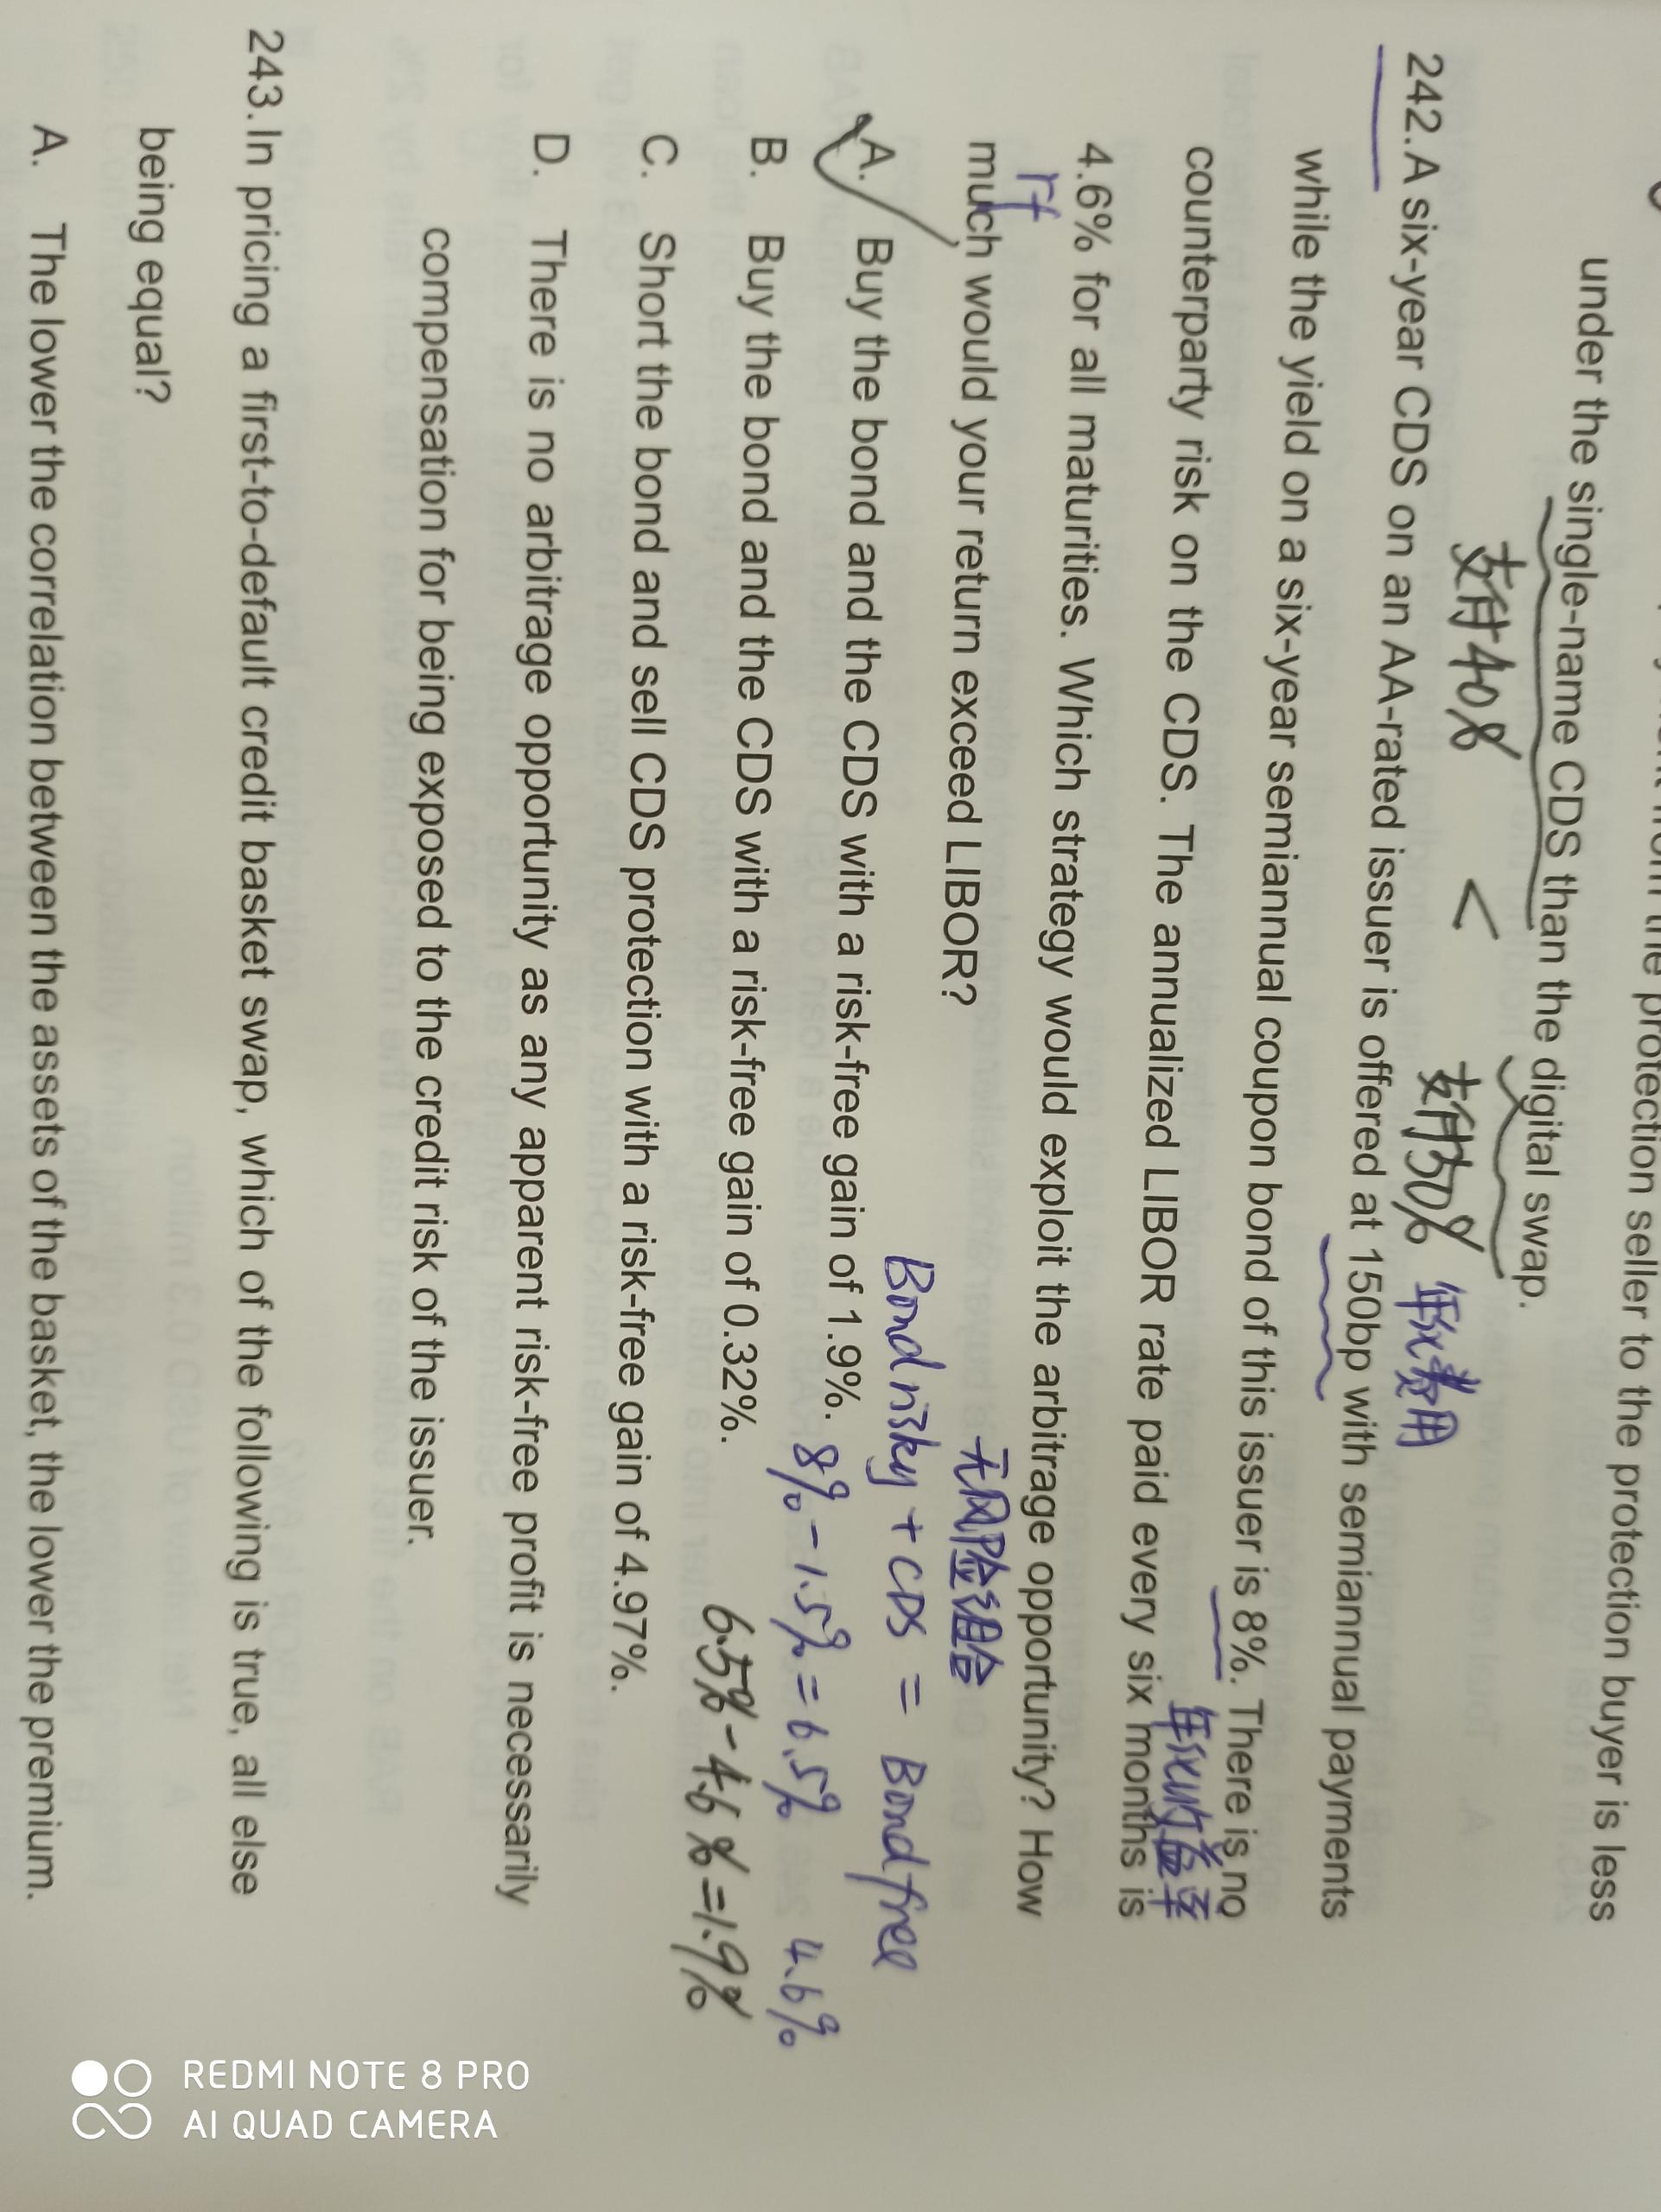 under the single-name CDS than the digital swap.
支付40% < 支付50% 年化费用
242. A six-year CDS on an AA-rated issuer is offered at 150bp with semiannual payments
while the yield on a six-year semiannual coupon bond of this issuer is 8%. There is no
年化收益率
counterparty risk on the CDS. The annualized LIBOR rate paid every six months is
4.6% for all maturities. Which strategy would exploit the arbitrage opportunity? How
rf
无风险组合
much would your return exceed LIBOR?
Bond risky + CDS = Bond free
A. Buy the bond and the CDS with a risk-free gain of 1.9%.
8% - 1.5% = 6.5% 4.6%
B. Buy the bond and the CDS with a risk-free gain of 0.32%.
6.5% - 4.6% = 1.9%
C. Short the bond and sell CDS protection with a risk-free gain of 4.97%.
D. There is no arbitrage opportunity as any apparent risk-free profit is necessarily
compensation for being exposed to the credit risk of the issuer.
243. In pricing a first-to-default credit basket swap, which of the following is true, all else
being equal?
A. The lower the correlation between the assets of the basket, the lower the premium.
REDMI NOTE 8 PRO
AI QUAD CAMERA